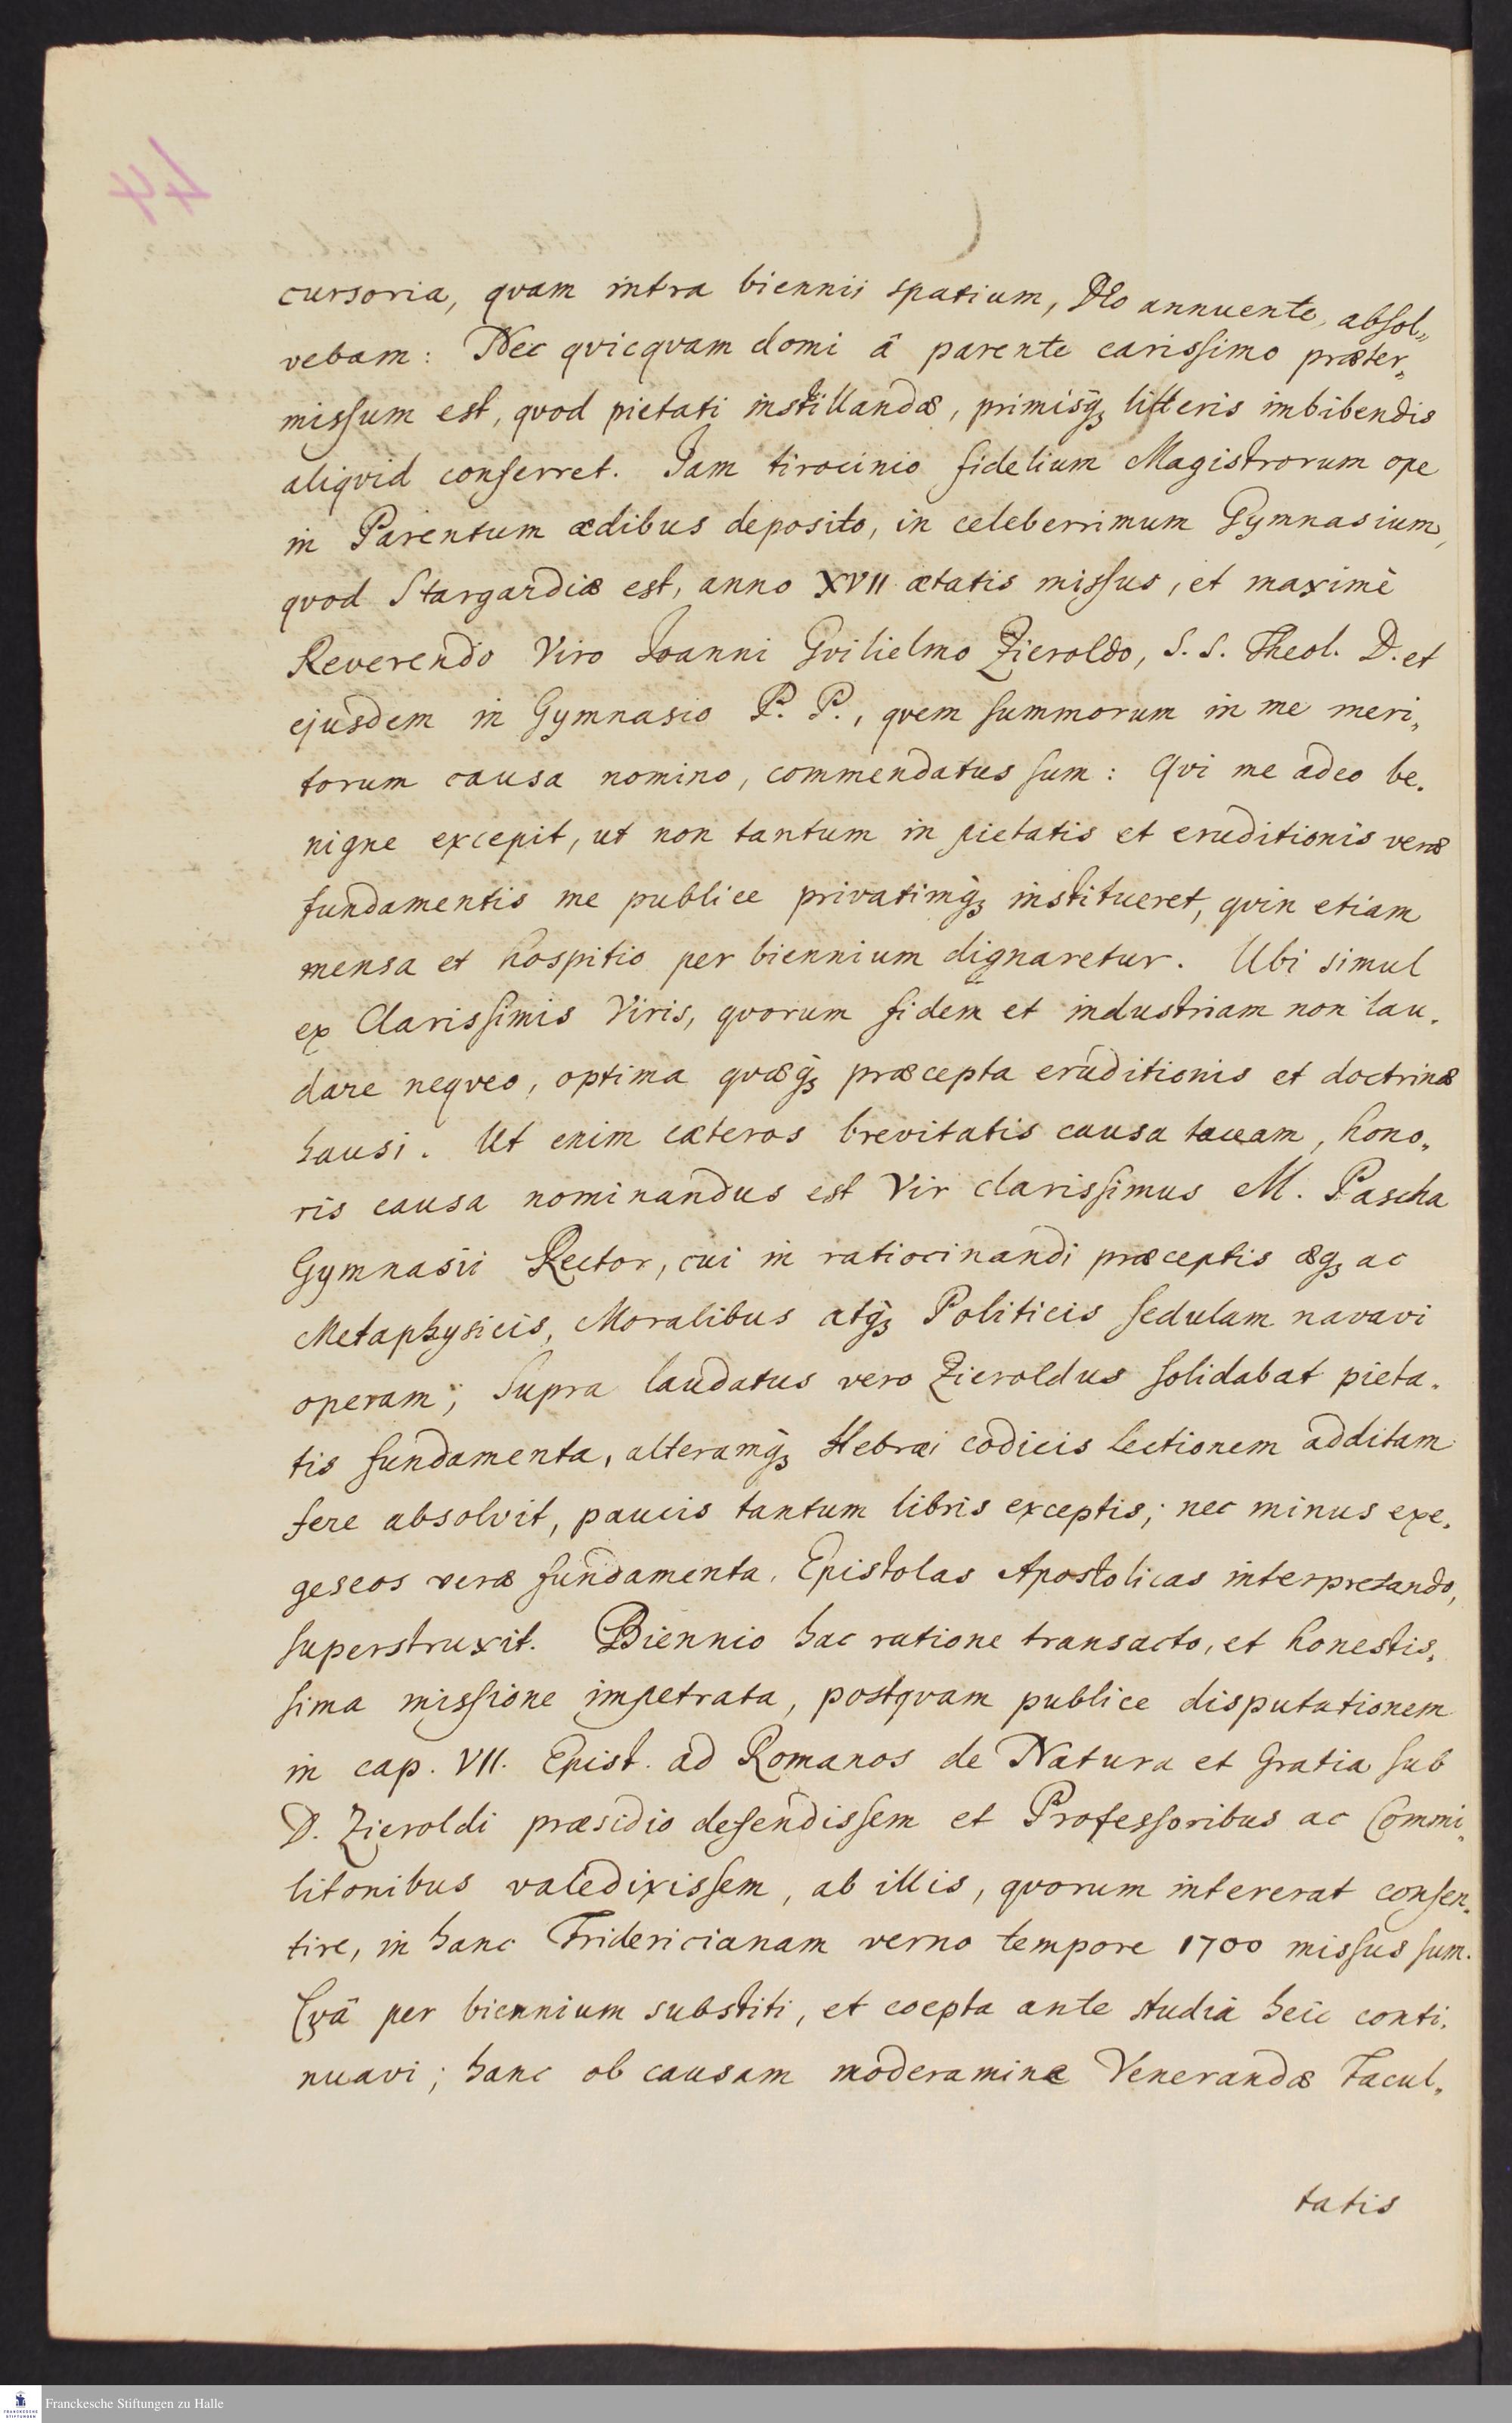 cursoria, qvam intra biennii spatium, DEo annuente, absol„
vebam: Nec qvicqvam domi â parente carissimo præter„
missum est, qvod pietati instillandæ, primisq̀ꝫ litteris imbibendis
aliqvid conferret. Jam tirocinio fidelium Magistrorum ope
in Parentum ædibus deposito, in celeberrimum Gymnasium,
qvod Stargardiæ est, anno XVII ætatis missus, et maximè
Reverendo Viro Joanni Gvilielmo Zieroldo, S. S. Theol. D. et
ejusdem in Gymnasio P. P., qvem summorum in me meri„
torum causa nomino, commendatus sum: Qvi me adeo be„
nigne excepit, ut non tantum in pietatis et eruditionis veræ
fundamentis me publice privatimq̀ꝫ institueret, qvin etiam
mensa et hospitio per biennium dignaretur. Ubi simul
ex Clarissimis Viris, qvorum fidem et industriam non lau„
dare neqveo, optima qvæq̀ꝫ præcepta eruditionis et doctrinæ
hausi. Ut enim cæteros brevitatis causa taceam, hono„
ris causa nominandus est Vir clarissimus M. Pascha
Gymnasii Rector, cui in ratiocinandi præceptis æqꝫ ac
Metaphysicis, Moralibus atq̀ꝫ Politicis sedulam navavi
operam; Supra laudatus vero Zieroldus solidabat pieta„
tis fundamenta, alteramq̀ꝫ Hebræi codicis lectionem additam
fere absolvit, paucis tantum libris exceptis; nec minus exe„
geseos veræ fundamenta, Epistolas Apostolicas interpretando,
superstruxit. Biennio hac ratione transacto, et honestis„
sima missione impetrata, postqvam publice disputationem
in cap. VII. Epist. ad Romanos de Natura et Gratia sub
D. Zieroldi præsidio defendissem et Professoribus ac Commi„
litonibus valedixissem, ab illis, qvorum intererat consen„
tire, in hanc Fridericianam verno tempore 1700 missus sum.
Qvâ per biennium substiti, et coepta ante studia heic conti„
nuavi; hanc ob causam moderamine Venerandæ Facul„
tatis
Franckesche Stiftungen zu Halle